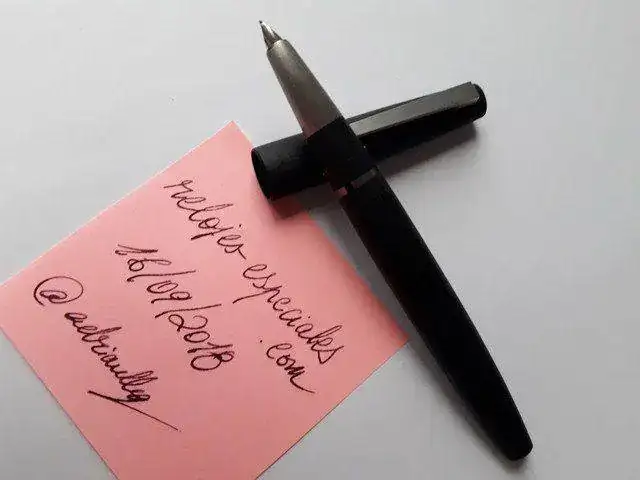 relojes especiales
.com
16/09/2018